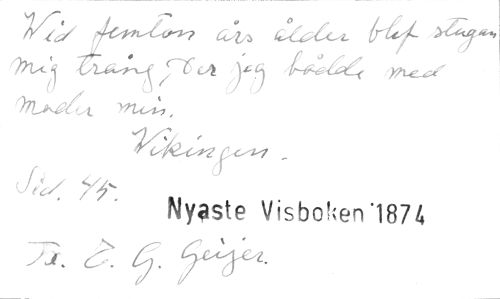 Wid femton års ålder blef stugan
mig trång, Der jag bodde med
moder min.
Vikingen.
Sid. 45.
Nyaste Visboken 1874
Tr. E. G. Geijer.